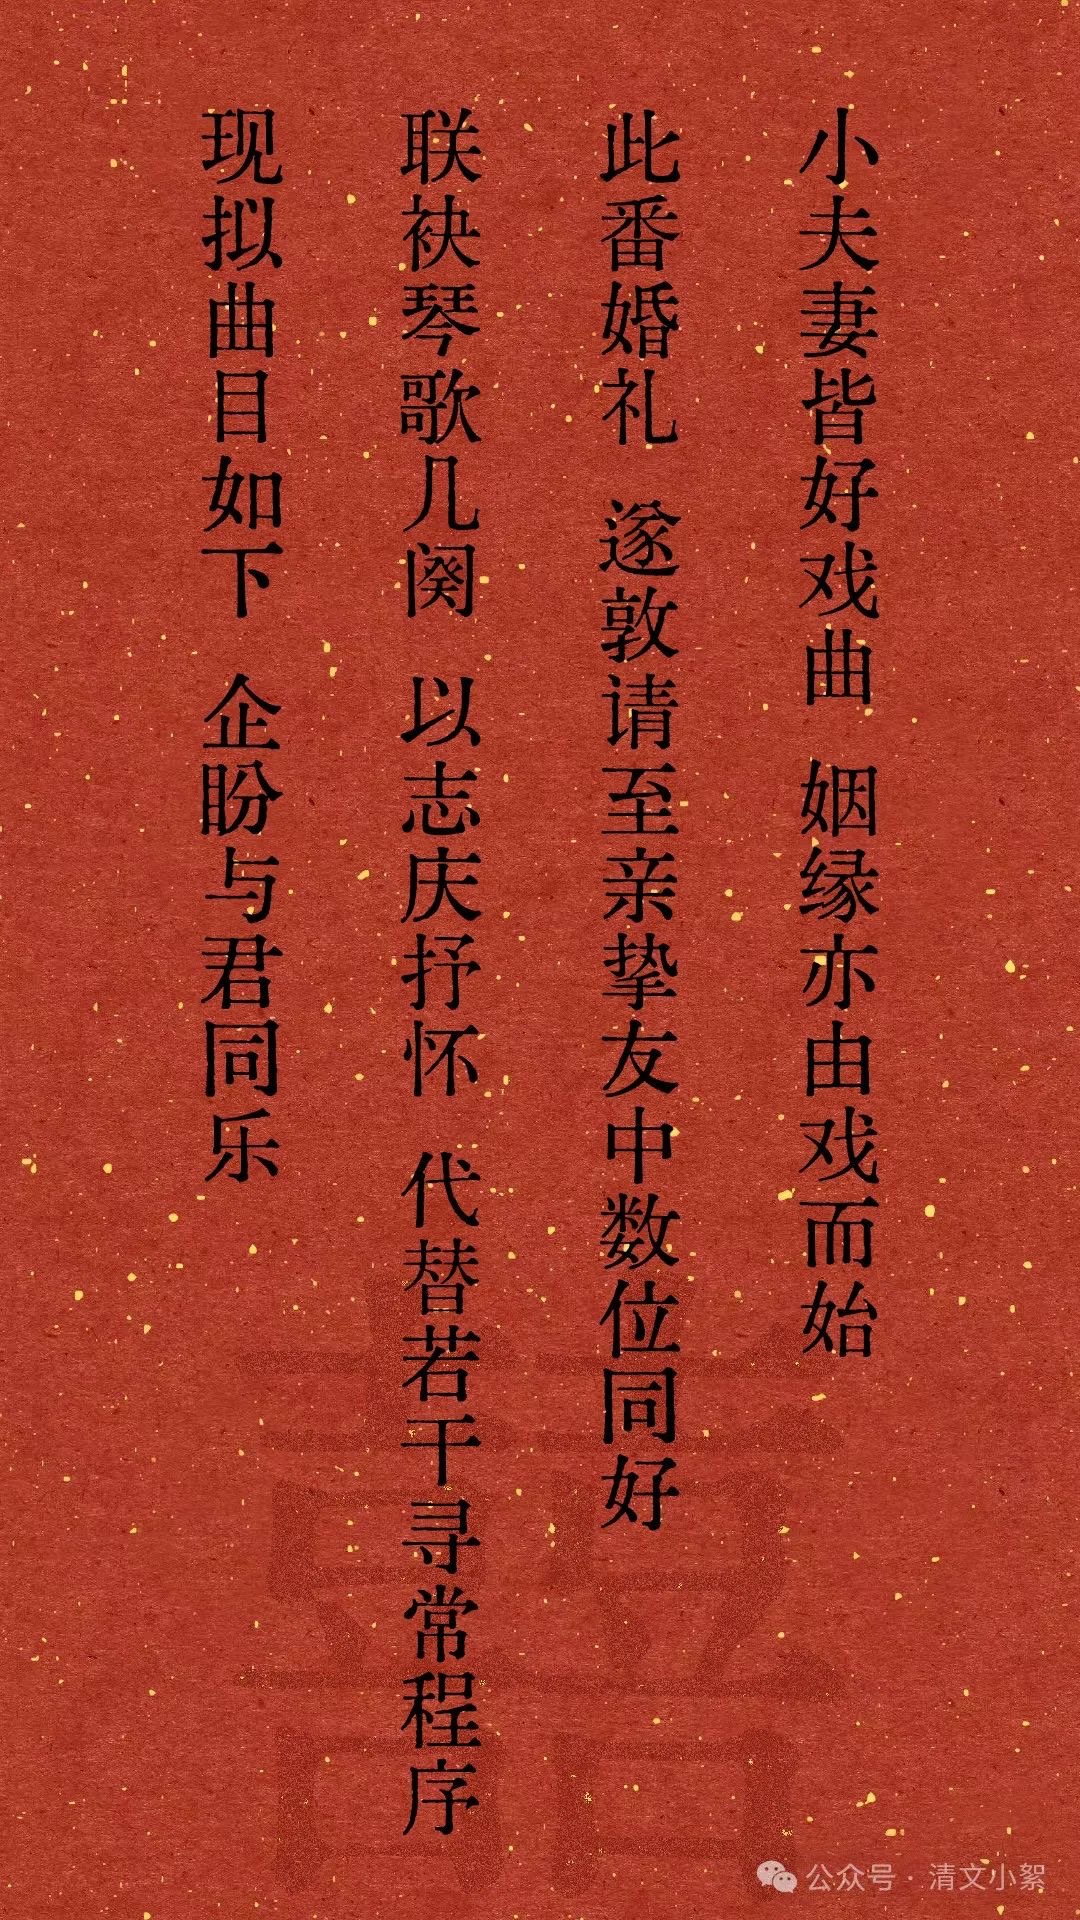 小夫妻皆好戏曲 姻缘亦由戏而始
此番婚礼 遂敦请至亲挚友中数位同好
联袂琴歌几阕 以志庆抒怀 代替若干寻常程序
现拟曲目如下 企盼与君同乐
囍
公众号·清文小絮